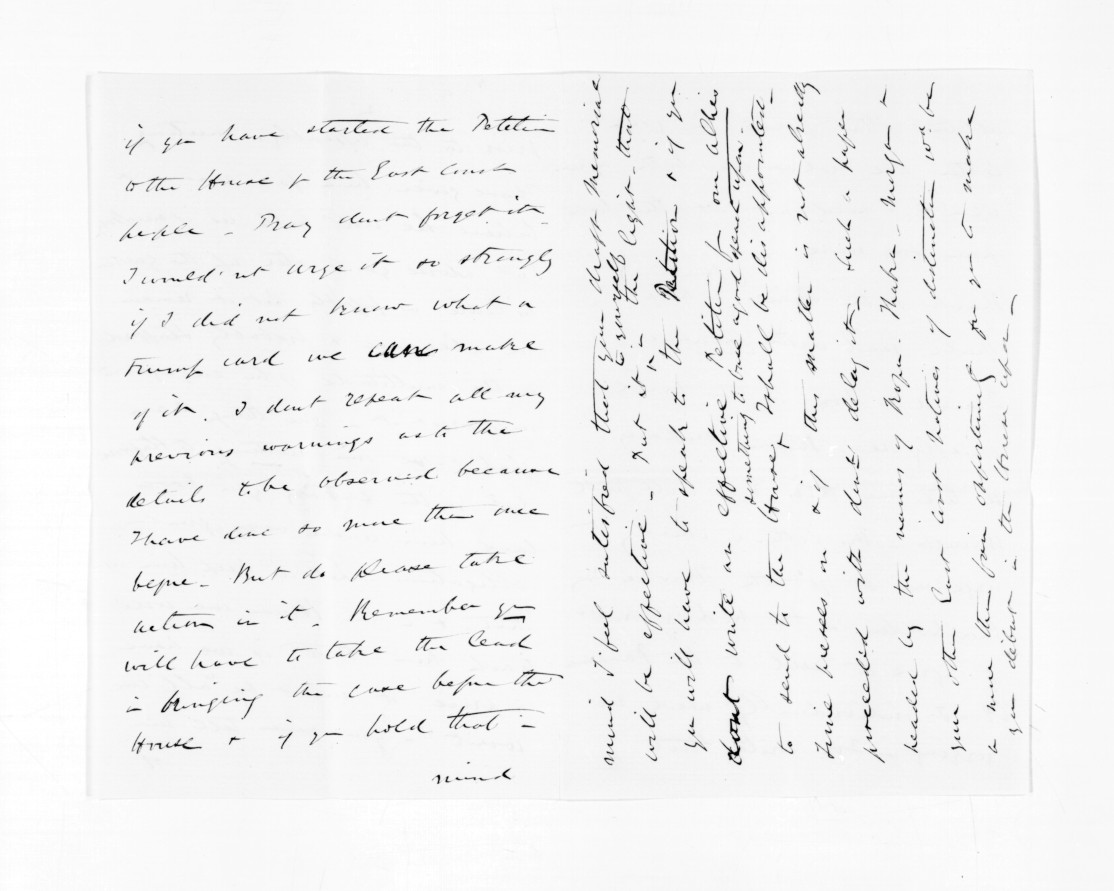 if you have started the Petition
to the House of the East Coast
people - Pray dont forget it.
I would'nt urge it so strongly
if I did not know what a
trump card we can make
of it. I dont repeat all my
previous warnings as to the
details to be observed because
I have done so more than once
before. But do please take
action in it. Remember you
will have to take the lead
in bringing the case before the
House & if you hold that in
mind
mind I feel satisfied that your draft Memorial
will be effective - Put it to yourself in the light that
you will have to speak to the Petition & if you
dont write an effective Petition for our allies
something to base a good speech upon.
to send to the House, I shall be disappointed -
Time presses on & if this matter is not already
proceeded with dont delay it. Such a paper
headed by the names of Ropu. Nahra - Morgan &
your other East Coast natives of distinction wd. be
a more than fair opportunity for you to make
your debut in the House upon -